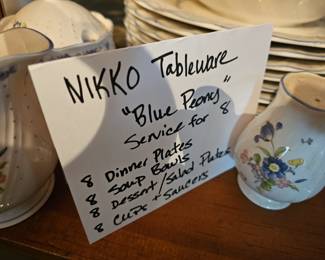 NIKKO Tableware
"Blue Peony"
Service for 8
8 Dinner Plates
8 Soup Bowls
8 Dessert/Salad Plates
8 Cups + Saucers